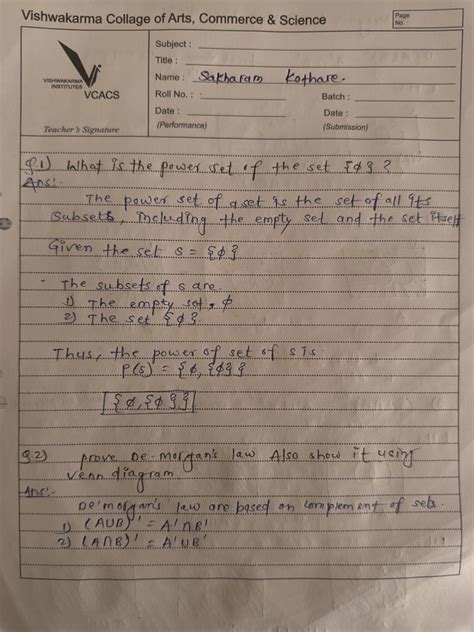 Vishwakarma Collage of Arts, Commerce & Science
Page No.
VISHWAKARMA INSTITUTES
VCACS
Teacher's Signature
Subject :
Title :
Name : Sakharam Kothare.
Roll No. :
Batch :
Date :
Date :
(Performance)
(Submission)
Q.1) What is the power set of the set {ϕ} ?
Ans:-
The power set of a set is the set of all its
subsets, including the empty set and the set itself
Given the set s = {ϕ}
- The subsets of s are.
1) The empty set, ϕ
2) The set {ϕ}
Thus, the power of set of s is
P(s) = {ϕ, {ϕ}}
[{ϕ, {ϕ}}]
Q.2) prove De-morgan's law Also show it using
venn diagram.
Ans:-
De'morgan's law are based on complement of sets.
1) (A∪B)' = A'∩B'
2) (A∩B)' = A'∪B'